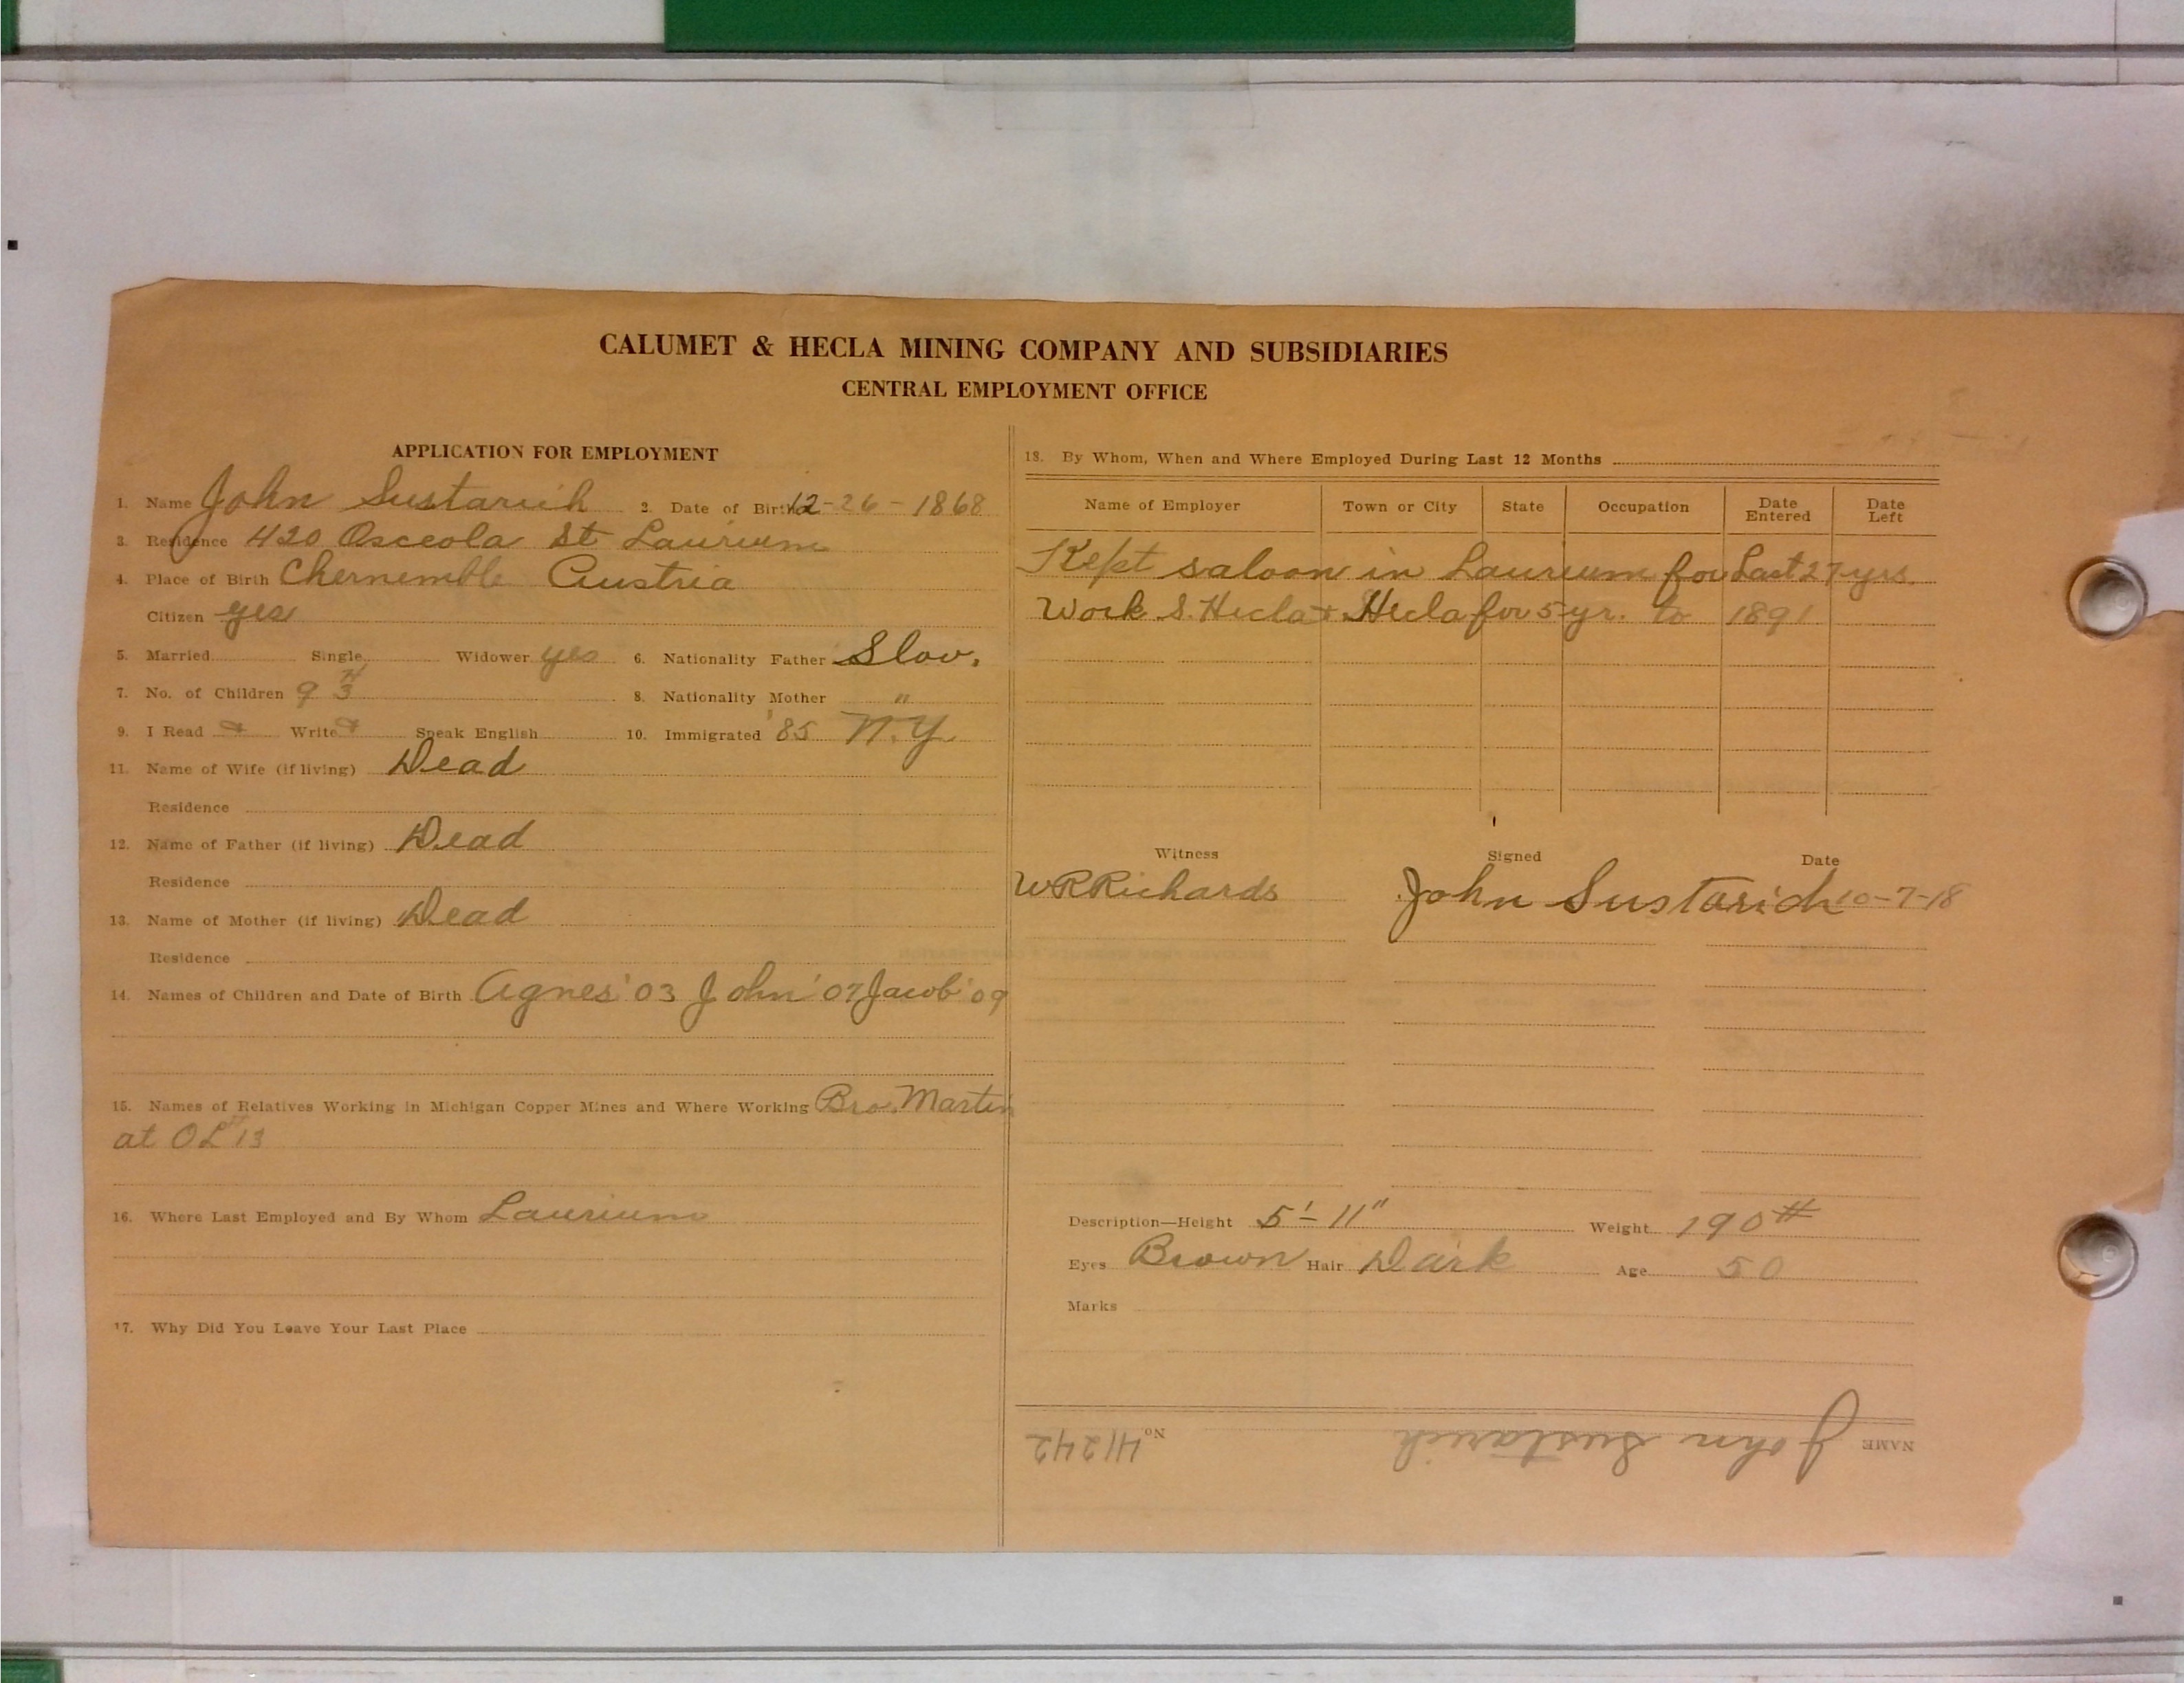 CALUMET & HECLA MINING COMPANY AND SUBSIDIARIES
CENTRAL EMPLOYMENT OFFICE
APPLICATION FOR EMPLOYMENT
1. Name John Sustarich 2. Date of Birth 12-26-1868
3. Residence 420 Osceola St Laurium
4. Place of Birth Chernemble Austria
Citizen yes
5. Married Single Widower yes 6. Nationality Father Slov.
7. No. of Children 9 3 8. Nationality Mother "
9. I Read Write Speak English 10. Immigrated '85 N.Y.
11. Name of Wife (if living) Dead
Residence
12. Name of Father (if living) Dead
Residence
13. Name of Mother (if living) Dead
Residence
14. Names of Children and Date of Birth Agnes '03 John '07 Jacob '09
15. Names of Relatives Working in Michigan Copper Mines and Where Working Bro. Martin
at OL 13
16. Where Last Employed and By Whom Laurium
17. Why Did You Leave Your Last Place
18. By Whom, When and Where Employed During Last 12 Months
Name of Employer Town or City State Occupation Date Entered Date Left
Kept saloon in Laurium for Last 27 yrs.
Work S. Hecla + Hecla for 5 yr. to 1891
Witness Signed Date
WR Richards John Sustarich 10-7-18
Description—Height 5'-11" Weight 190#
Eyes Brown Hair Dark Age 50
Marks
NAME John Sustarich No. 41242